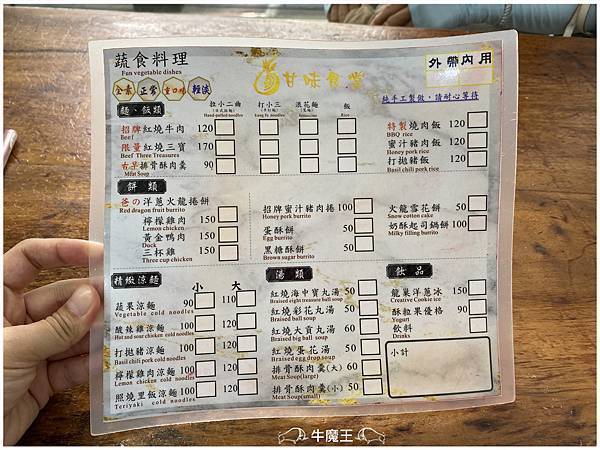 蔬食料理
Fun vegetable dishes
全素 正常 重口味 輕淡
甘味食堂
外帶 內用
純手工製做，請耐心等待
麵、飯類
拉小二曲 打小三 浪花麵 飯
Hand-pulled noodles Kung fu noodles Noodles Rice
招牌紅燒牛肉 120
Beef
限量紅燒三寶 170
Beef Three Treasures
古早排骨酥肉羹 90
Meat Soup
特製燒肉飯 120
BBQ rice
蜜汁豬肉飯 120
Honey pork rice
打拋豬飯 120
Basil chili pork rice
餅類
爸の洋蔥火龍捲餅
Red dragon fruit burrito
檸檬雞肉 150
Lemon chicken
黃金鴨肉 150
Duck
三杯雞 150
Three cup chicken
招牌蜜汁豬肉捲 100
Honey pork burrito
蛋酥餅 50
Egg burrito
黑糖酥餅 50
Brown sugar burrito
火龍雪花餅 50
Snow cotton cake
奶酥起司鍋餅 100
Milky filling burrito
精緻涼麵 小 大
蔬果涼麵 90 110
Vegetable cold noodles
酸辣雞涼麵 100 120
Hot and sour chicken cold noodles
打拋豬涼麵 100 120
Basil chili pork cold noodles
檸檬雞肉涼麵 100 120
Lemon chicken cold noodles
照燒里飯涼麵 100 120
Teriyaki cold noodles
湯類
紅燒海中寶丸湯 50
Braised eight treasure ball soup
紅燒彩花丸湯 50
Braised ball soup
紅燒大貢丸湯 60
Braised big ball soup
紅燒蛋花湯 50
Braised egg drop soup
排骨酥肉羹(大) 60
Meat Soup(large)
排骨酥肉羹(小) 50
Meat Soup(small)
飲品
龍巢洋蔥冰 150
Creative Cookie ice
酥粒果優格 90
Yogurt
飲料
Drinks
小計
牛魔王